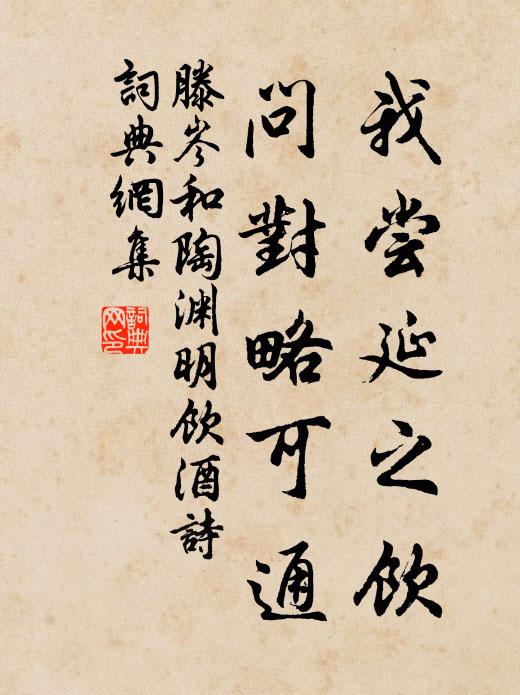 我尝延之饮
問對略可通
滕岑和陶渊明饮酒詩
詞典網集
詞典网印